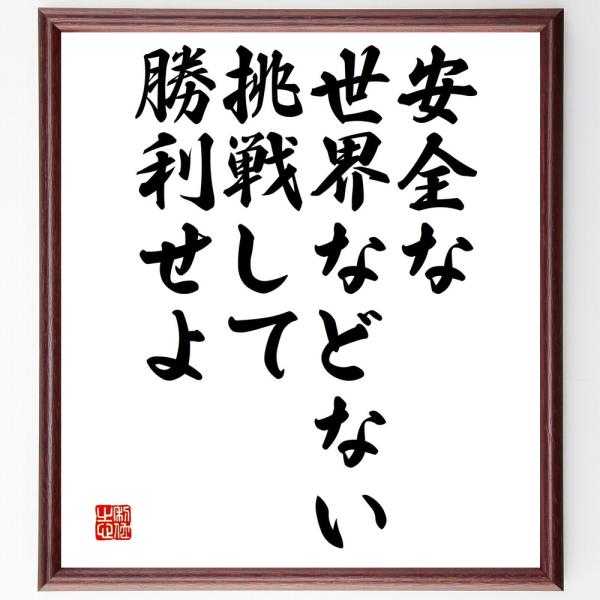 安全な
世界などない
挑戦して
勝利せよ